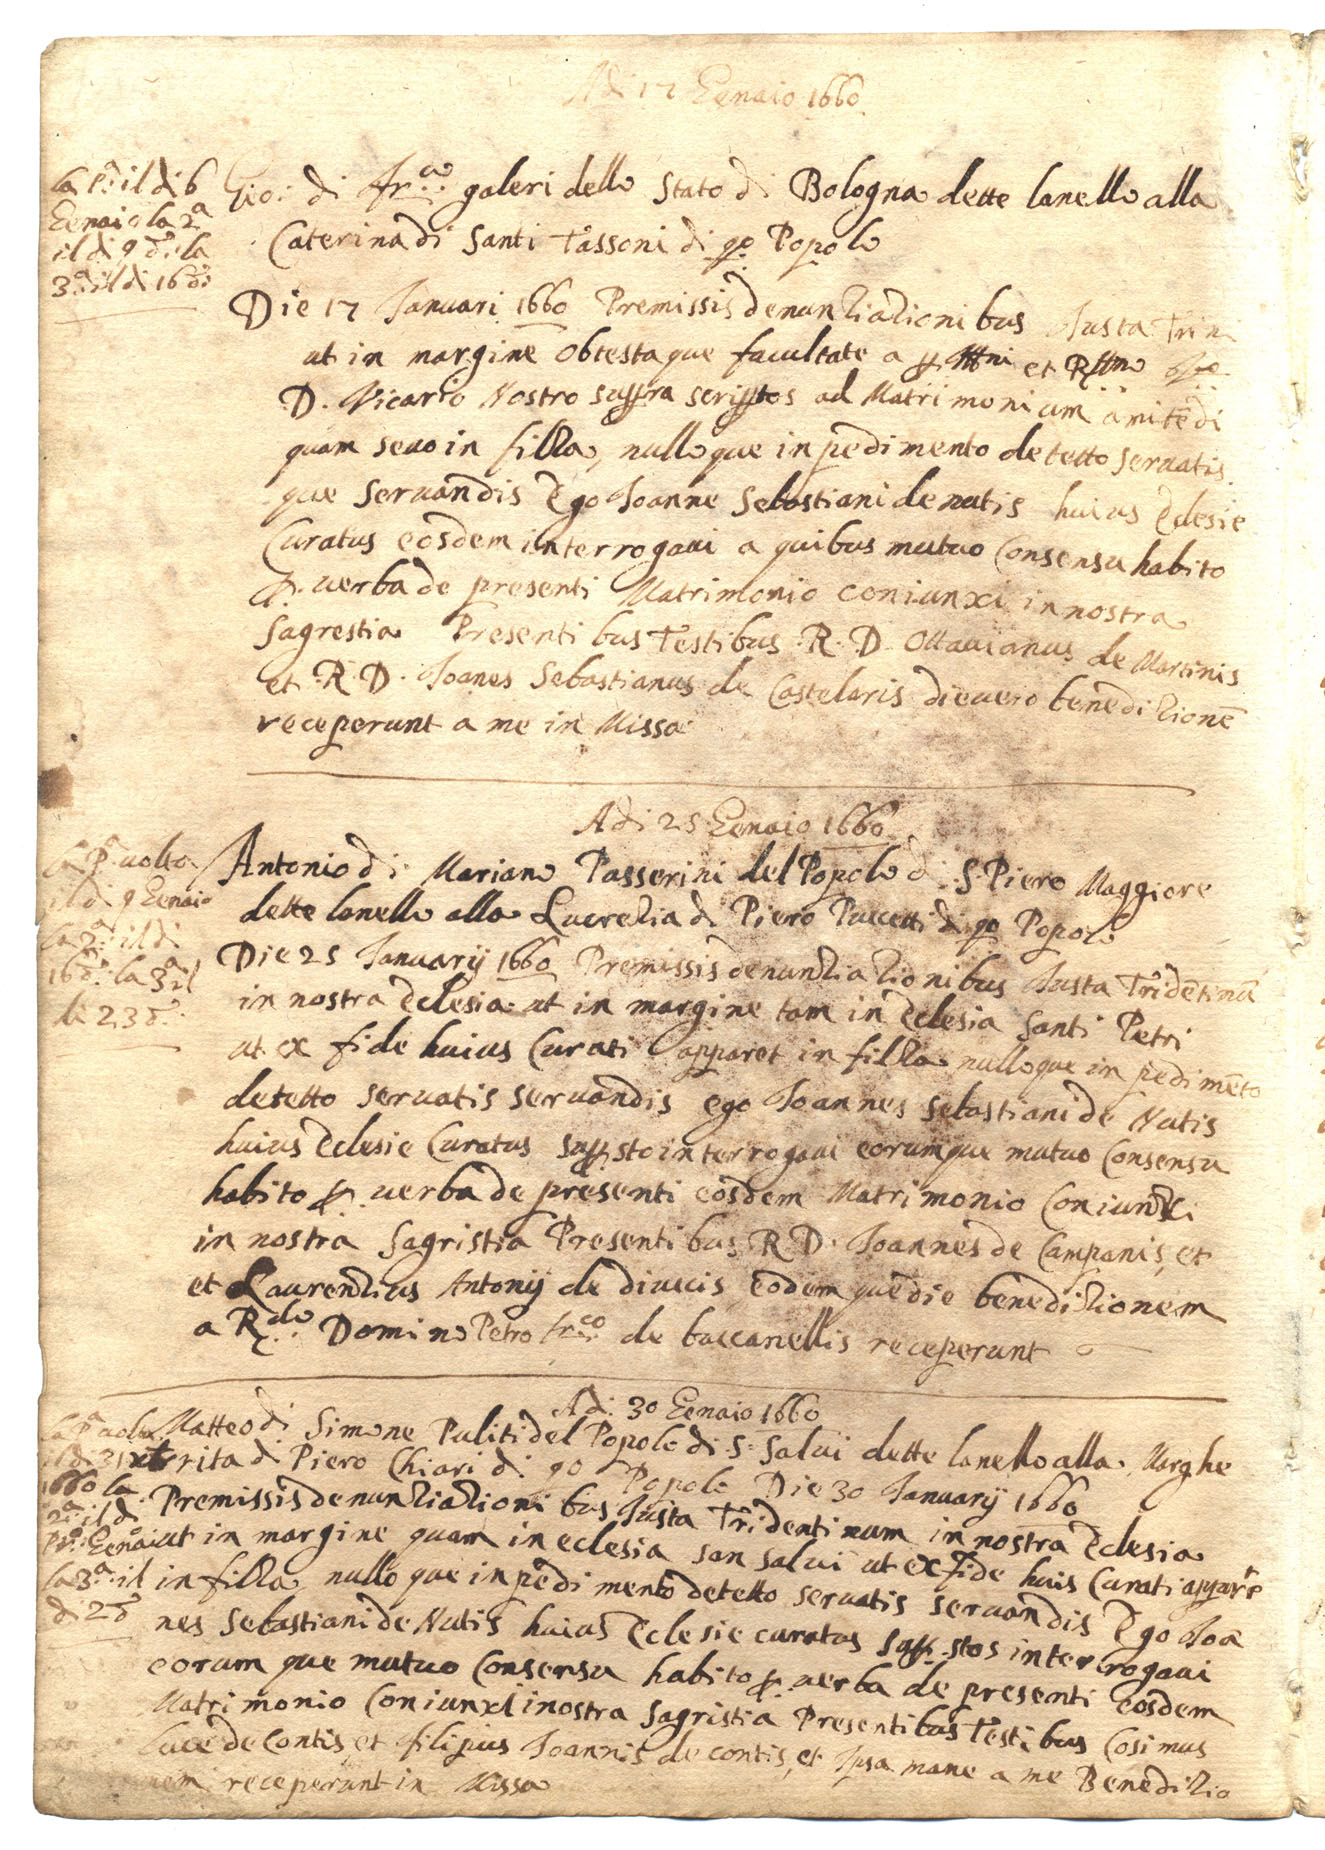 Adi 17 Genaio 1660
la Pa: il di 6
Genaio la 2a
il di 9 do: la
3a il di 16 do:
Gio: di Fr.co galeri dello Stato di Bologna dette lanello alla
Caterina di Santi Tassoni di qo Popolo
Die 17 Januari 1660 Premissis denuntiationibus Justa Trini
ut in margine obtestaque facultate a et
D. Vicario Nostro suppra scripptos ad Matrimonium amitēdi
quam seuo in filza, nulloque inpedimento detetto seruatis
que seruandis Ego Joanne Sebastiani de nutis huius Eclesie
Curatus eosdem interrogaui a quibus mutuo Consensu habito
p. uerba de presenti Matrimonio coniunxi in nostra
Sagrestia Presentibus Testibus R. D. Ottauianus de Martinis
et R. D. Joanes Sebastianus de Castelaris die uero beneditionē
receperunt a me in Missa
Adi 25 Genaio 1660
la Pa uolta
il di 9 Genaio
la 2a il di
16 do: la 3a il
di 23 do:
Antonio di Mariano Passerini del Popolo di S. Piero Maggiore
dette lanello alla Lucretia di Piero Puccetti di qo Popolo
Die 25 Januarij 1660 Premissis denuntiationibus Justa Tridētinū
in nostra Eclesia ut in margine tam in Eclesia Santi Petri
ut ex fide huius Curati apparet in filza nulloque in pedimēto
detetto seruatis seruandis ego Joannes Sebastiani de Nutis
huius Eclesie Curatus supp.sto interrogaui eorumque mutuo Consensu
habito p. uerba de presenti eosdem Matrimonio Coniunxi
in nostra Sagristia Presentibus R. D. Joannes de Campanis, et
et Laurentius Antonij de diuicis eodem que die beneditionem
a R.do Domino Petro Fr.co de baccanellis receperunt
Adi 30 Genaio 1660
la Pa uolta
il di 31 xbre
1660 la
2a il di
Pro: Genaio
la 3a il
di 2 do
Matteo di Simone Puliti del Popolo di S. Salui dette lanello alla Marghe
rita di Piero Chiari di qo Popolo Die 30 Januarij 1660
Premissis denuntiationibus Justa Tridentinum in nostra Eclesia
ut in margine quam in eclesia san Salui ut ex fide huis Curati appare
in filza nulloque inpedimento detetto seruatis seruandis Ego Joā
nes Sebastiani de Nutis huius Eclesie curatus supp.stos interrogaui
eorum que mutuo Consensu habito p. uerba de presenti eosdem
Matrimonio Coniunxi inostra Sagristia Presentibus Testibus Cosimus
Luce de Contis et filipus Joannis de contis, et Ipsa mane a me Beneditio
nem receperunt in Missa